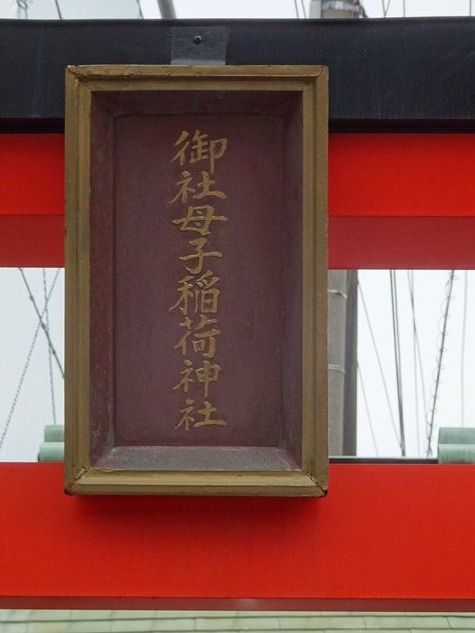 御社母子稲荷神社